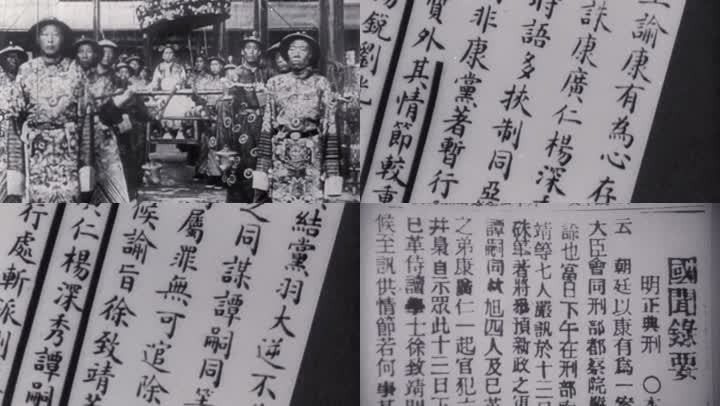 諭康有為心存
誅康廣仁楊深
將語多挾制同
非康黨者暫行
質外其情節較重
銳劉光
結黨羽大逆不
之同謀譚嗣同等
屬罪無可追除
候諭旨徐致靖著
仁楊深秀譚嗣
行處斬派剛
國聞錄要
明正典刑 ○本
云 朝廷以康有爲一案
大臣會同刑部都察院
諭也當日下午在刑部
靖等七人嚴訊於十三日
硃筆著將參預新政之
譚嗣同林旭四人及已革
之弟康廣仁一起官犯
井梟自示眾此十三日下
已革侍讀學士徐致靖則
候主訊供情節若何事